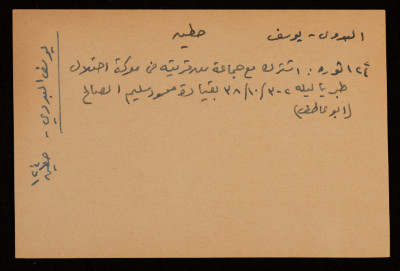 البدوي - يوسف حطين
في الثورة: اشترك مع جماعة من قريته في معركة احتلال
طبريا ليله ٢-٣/١٠/٣٨ بقيادة محمود سليم الصالح
(ابو عاطف)
يوسف البدوي - حطين